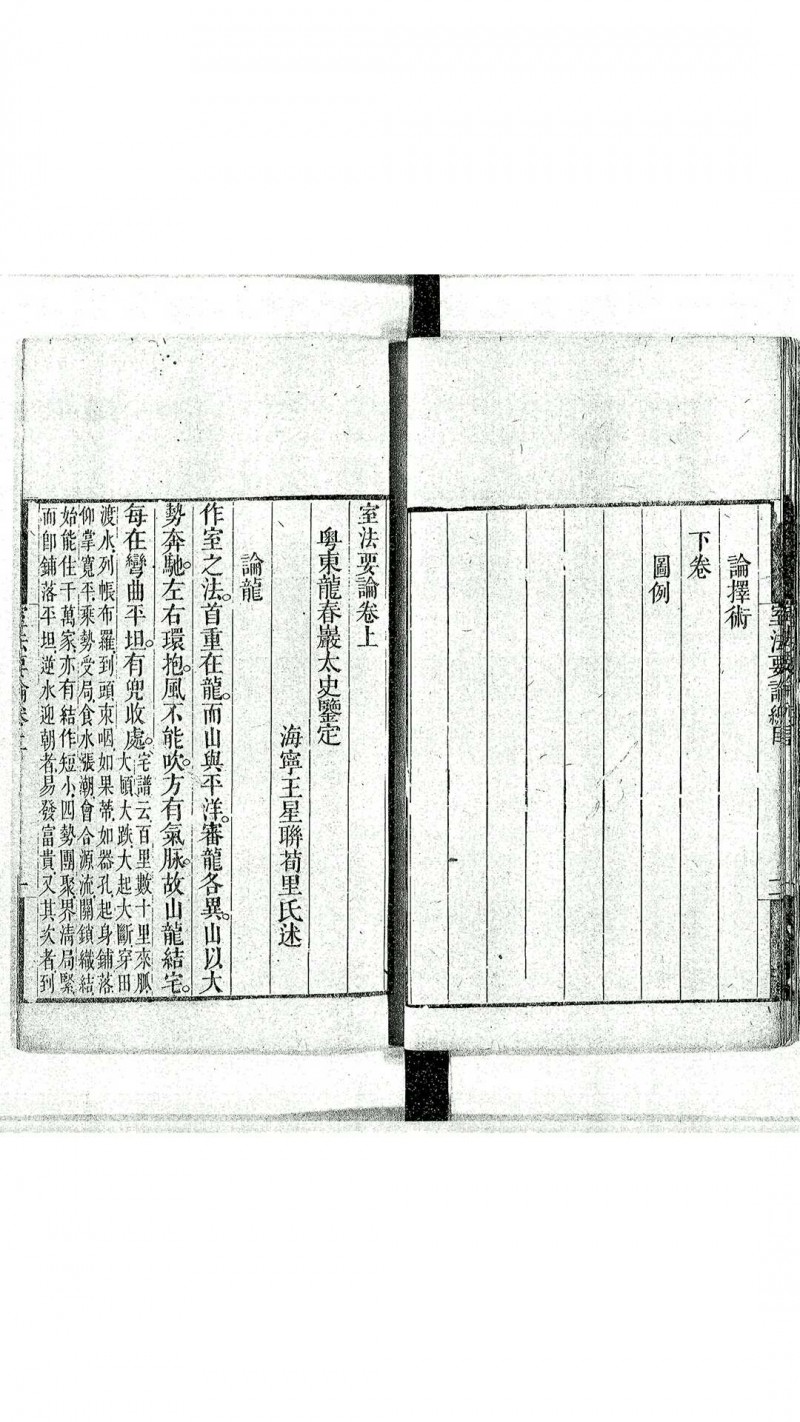 論擇術
下卷
圖例
室法要論總目
二
室法要論卷上
粤東龍春巖太史鑒定
海寧王星聯荀里氏述
論龍
作室之法。首重在龍。而山與平洋。審龍各異。山以大
勢奔馳。左右環抱。風不能吹。方有氣脉。故山龍結宅。
每在彎曲平坦。有兜收處。宅譜云百里數十里來脈
大頓大跌大起大斷穿田
渡水列帳布羅到頭束咽如果蒂如器孔起身鋪落
仰掌寬平乘勢受局食水漲潮會合源流關鎖織結
始能住千萬家亦有結作短小四勢團聚界清局緊
而卽鋪落平坦逆水迎朝者易發富貴又其次者到
室法要論卷上
一